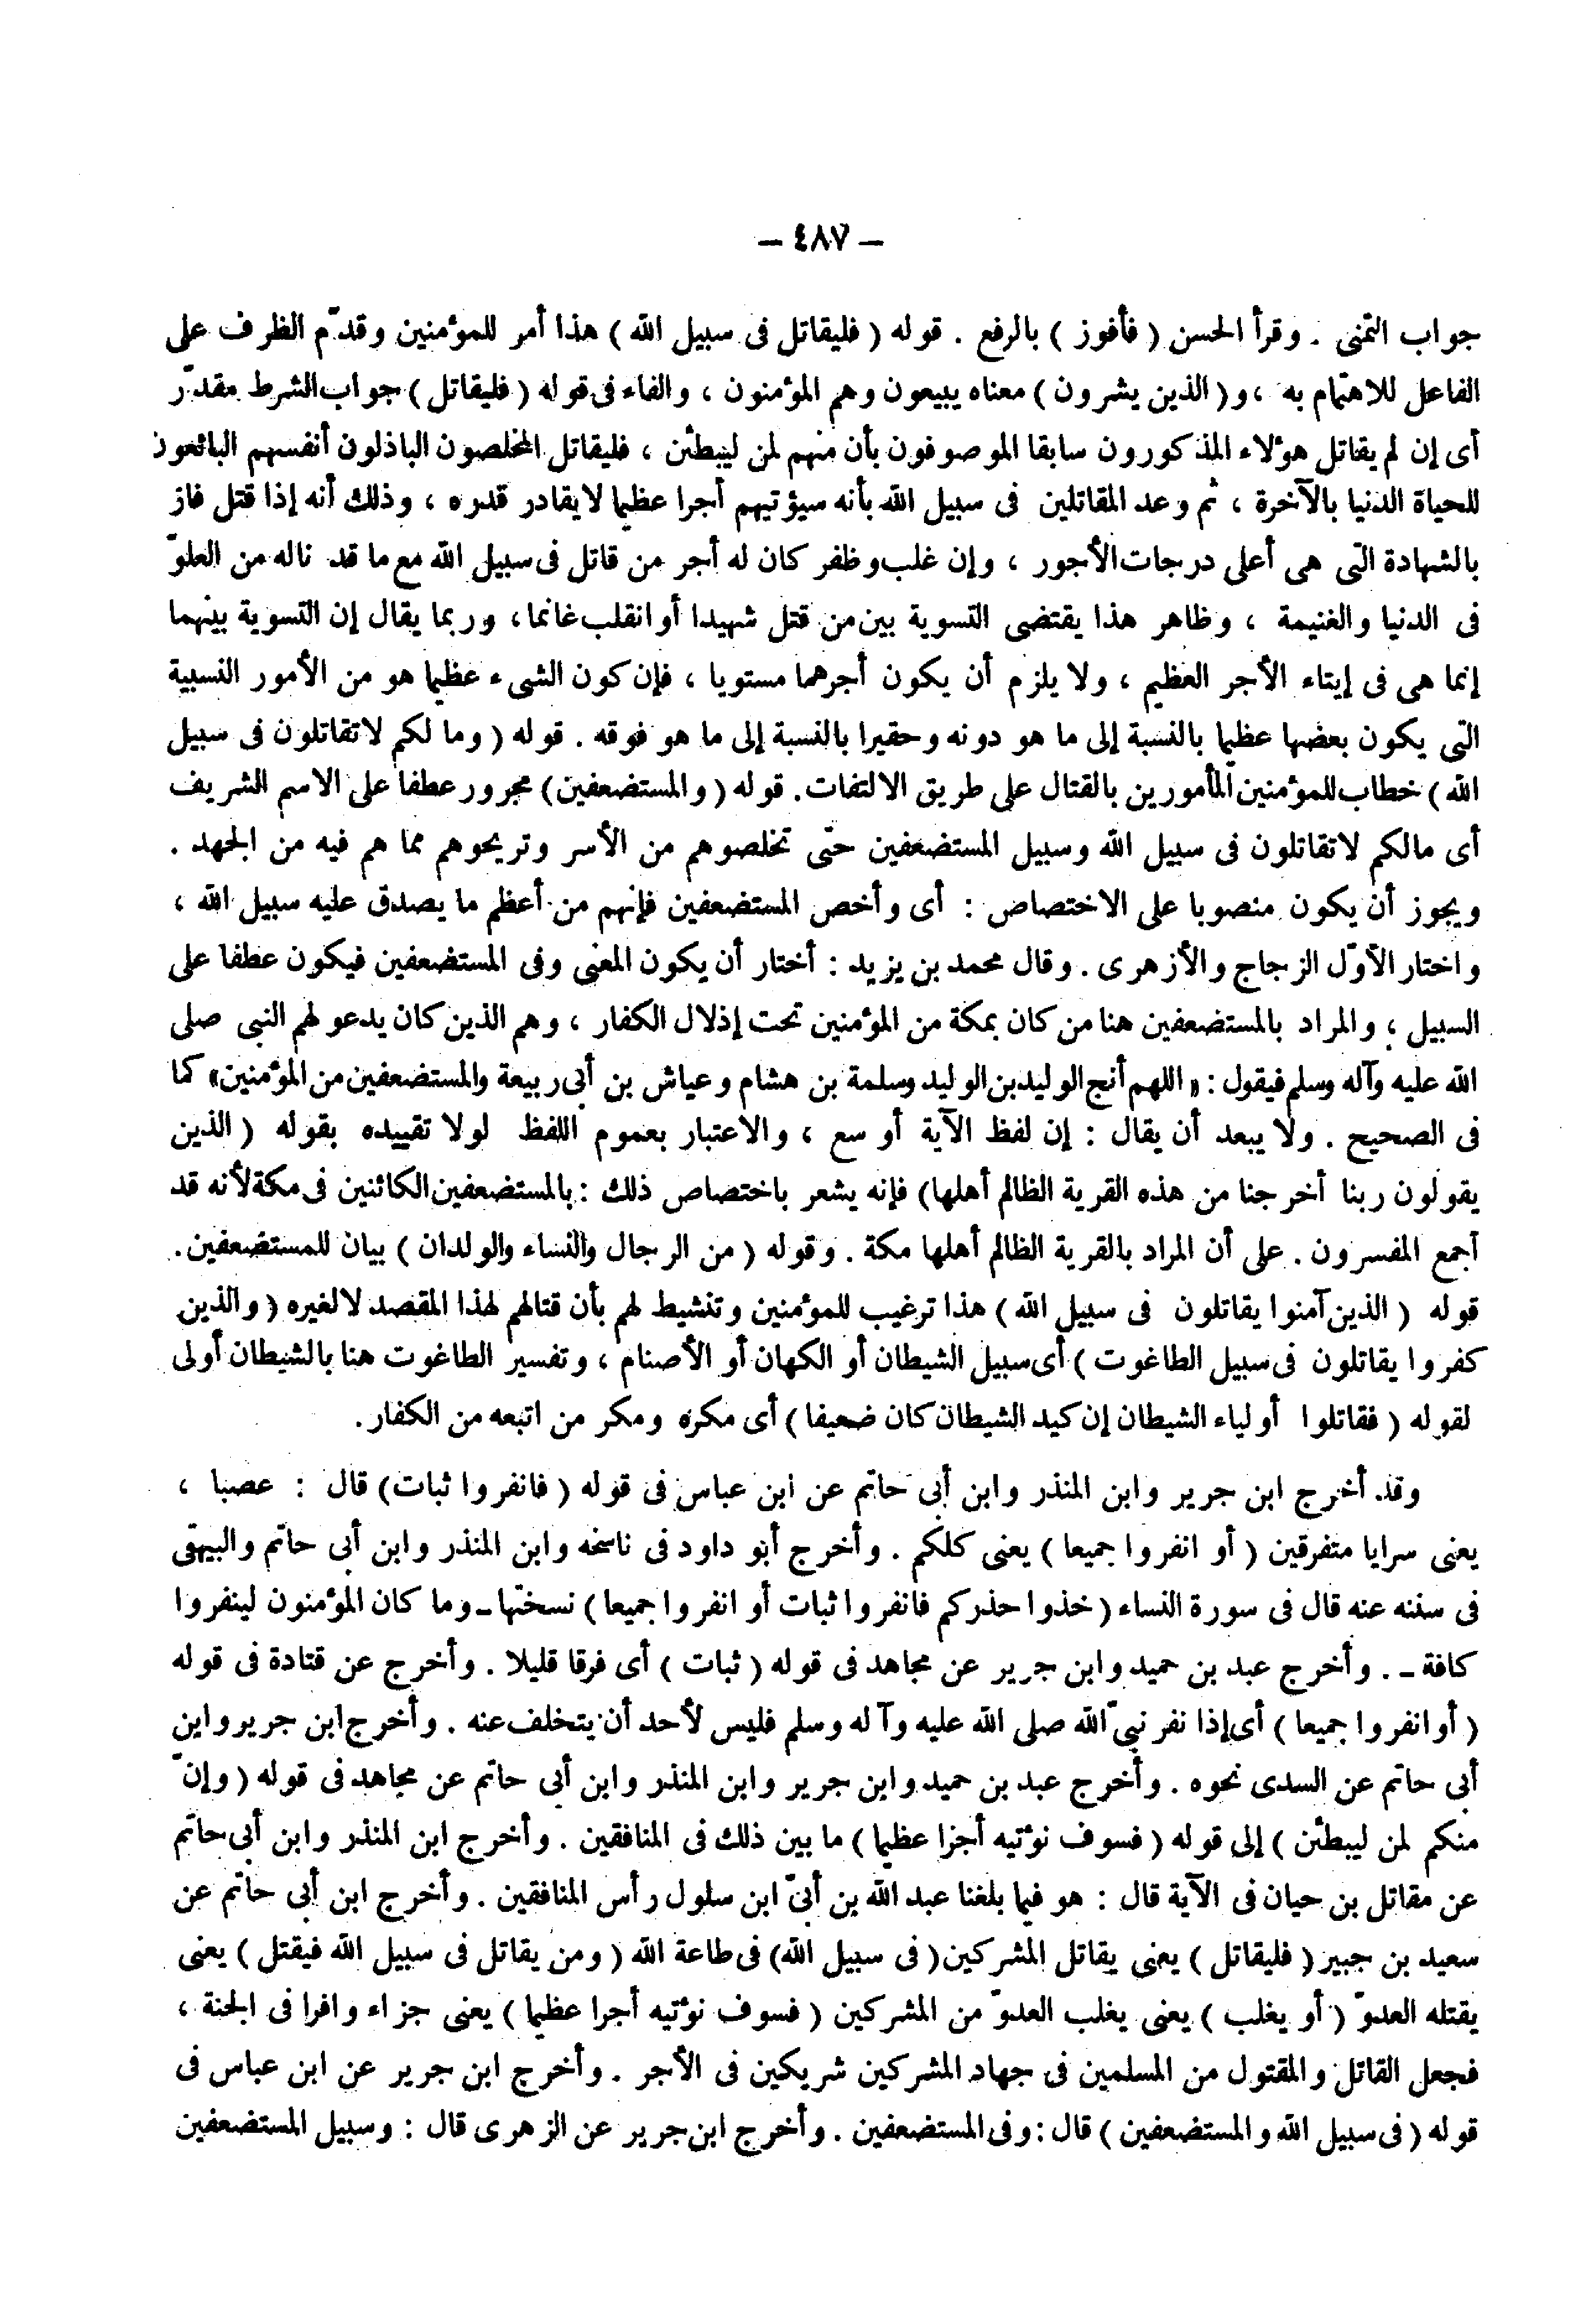 – ٤٨٧ –
جواب التمنى . وقرأ الحسن ( فأفوز ) بالرفع . قوله ( فليقاتل فى سبيل الله ) هذا أمر للمؤمنين وقدّم الظرف على
الفاعل للاهتمام به ، و ( الذين يشرون ) معناه يبيعون وهم المؤمنون ، والفاء فى قوله ( فليقاتل ) جواب الشرط مقدّر
أى إن لم يقاتل هؤلاء المذكورون سابقا الموصوفون بأن منهم لمن ليبطئن ، فليقاتل المخلصون الباذلون أنفسهم البائعون
للحياة الدنيا بالآخرة ، ثم وعد المقاتلين فى سبيل الله بأنه سيؤتيهم أجرا عظيما لا يقادر قدره ، وذلك أنه إذا قتل فاز
بالشهادة التى هى أعلى درجات الأجور ، وإن غلب وظفر كان له أجر من قاتل فى سبيل الله مع ما قد ناله من العلوّ
فى الدنيا والغنيمة ، وظاهر هذا يقتضى التسوية بين من قتل شهيدا أو انقلب غانما ، وربما يقال إن التسوية بينهما
إنما هى فى إيتاء الأجر العظيم ، ولا يلزم أن يكون أجرهما مستويا ، فإن كون الشىء عظيما هو من الأمور النسبية
التى يكون بعضها عظيما بالنسبة إلى ما هو دونه وحقيرا بالنسبة إلى ما هو فوقه . قوله ( وما لكم لا تقاتلون فى سبيل
الله ) خطاب للمؤمنين المأمورين بالقتال على طريق الالتفات . قوله ( والمستضعفين ) مجرور عطفا على الاسم الشريف
أى مالكم لا تقاتلون فى سبيل الله وسبيل المستضعفين حتى تخلصوهم من الأسر وتريحوهم مما هم فيه من الجهد .
ويجوز أن يكون منصوبا على الاختصاص : أى وأخص المستضعفين فإنهم من أعظم ما يصدق عليه سبيل الله ،
واختار الأوّل الزجاج والأزهرى . وقال محمد بن يزيد : أختار أن يكون المعنى وفى المستضعفين فيكون عطفا على
السبيل ، والمراد بالمستضعفين هنا من كان بمكة من المؤمنين تحت إذلال الكفار ، وهم الذين كان يدعو لهم النبى صلى
الله عليه وآله وسلم فيقول : « اللهم أنج الوليد بن الوليد وسلمة بن هشام وعياش بن أبى ربيعة والمستضعفين من المؤمنين » كما
فى الصحيح . ولا يبعد أن يقال : إن لفظ الآية أوسع ، والاعتبار بعموم اللفظ لولا تقييده بقوله ( الذين
يقولون ربنا أخرجنا من هذه القرية الظالم أهلها ) فإنه يشعر باختصاص ذلك : بالمستضعفين الكائنين فى مكة لأنه قد
أجمع المفسرون . على أن المراد بالقرية الظالم أهلها مكة . وقوله ( من الرجال والنساء والولدان ) بيان للمستضعفين .
قوله ( الذين آمنوا يقاتلون فى سبيل الله ) هذا ترغيب للمؤمنين وتنشيط لهم بأن قتالهم لهذا المقصد لا لغيره ( والذين
كفروا يقاتلون فى سبيل الطاغوت ) أى سبيل الشيطان أو الكهان أو الأصنام ، وتفسير الطاغوت هنا بالشيطان أولى
لقوله ( فقاتلوا أولياء الشيطان إن كيد الشيطان كان ضعيفا ) أى مكره ومكر من اتبعه من الكفار .
وقد أخرج ابن جرير وابن المنذر وابن أبى حاتم عن ابن عباس فى قوله ( فانفروا ثبات ) قال : عصبا ،
يعنى سرايا متفرقين ( أو انفروا جميعا ) يعنى كلكم . وأخرج أبو داود فى ناسخه وابن المنذر وابن أبى حاتم والبيهقى
فى سننه عنه قال فى سورة النساء ( خذوا حذركم فانفروا ثبات أو انفروا جميعا ) نسختها - وما كان المؤمنون لينفروا
كافة - . وأخرج عبد بن حميد وابن جرير عن مجاهد فى قوله ( ثبات ) أى فرقا قليلا . وأخرج عن قتادة فى قوله
( أو انفروا جميعا ) أى إذا نفر نبىّ الله صلى الله عليه وآله وسلم فليس لأحد أن يتخلف عنه . وأخرج ابن جرير وابن
أبى حاتم عن السدى نحوه . وأخرج عبد بن حميد وابن جرير وابن المنذر وابن أبى حاتم عن مجاهد فى قوله ( وإنّ
منكم لمن ليبطئن ) إلى قوله ( فسوف نؤتيه أجرا عظيما ) ما بين ذلك فى المنافقين . وأخرج ابن المنذر وابن أبى حاتم
عن مقاتل بن حيان فى الآية قال : هو فيما بلغنا عبد الله بن أبىّ ابن سلول رأس المنافقين . وأخرج ابن أبى حاتم عن
سعيد بن جبير ( فليقاتل ) يعنى يقاتل المشركين ( فى سبيل الله ) فى طاعة الله ( ومن يقاتل فى سبيل الله فيقتل ) يعنى
يقتله العدوّ ( أو يغلب ) يعنى يغلب العدوّ من المشركين ( فسوف نؤتيه أجرا عظيما ) يعنى جزاء وافرا فى الجنة ،
فجعل القاتل والمقتول من المسلمين فى جهاد المشركين شريكين فى الأجر . وأخرج ابن جرير عن ابن عباس فى
قوله ( فى سبيل الله والمستضعفين ) قال : وفى المستضعفين . وأخرج ابن جرير عن الزهرى قال : وسبيل المستضعفين